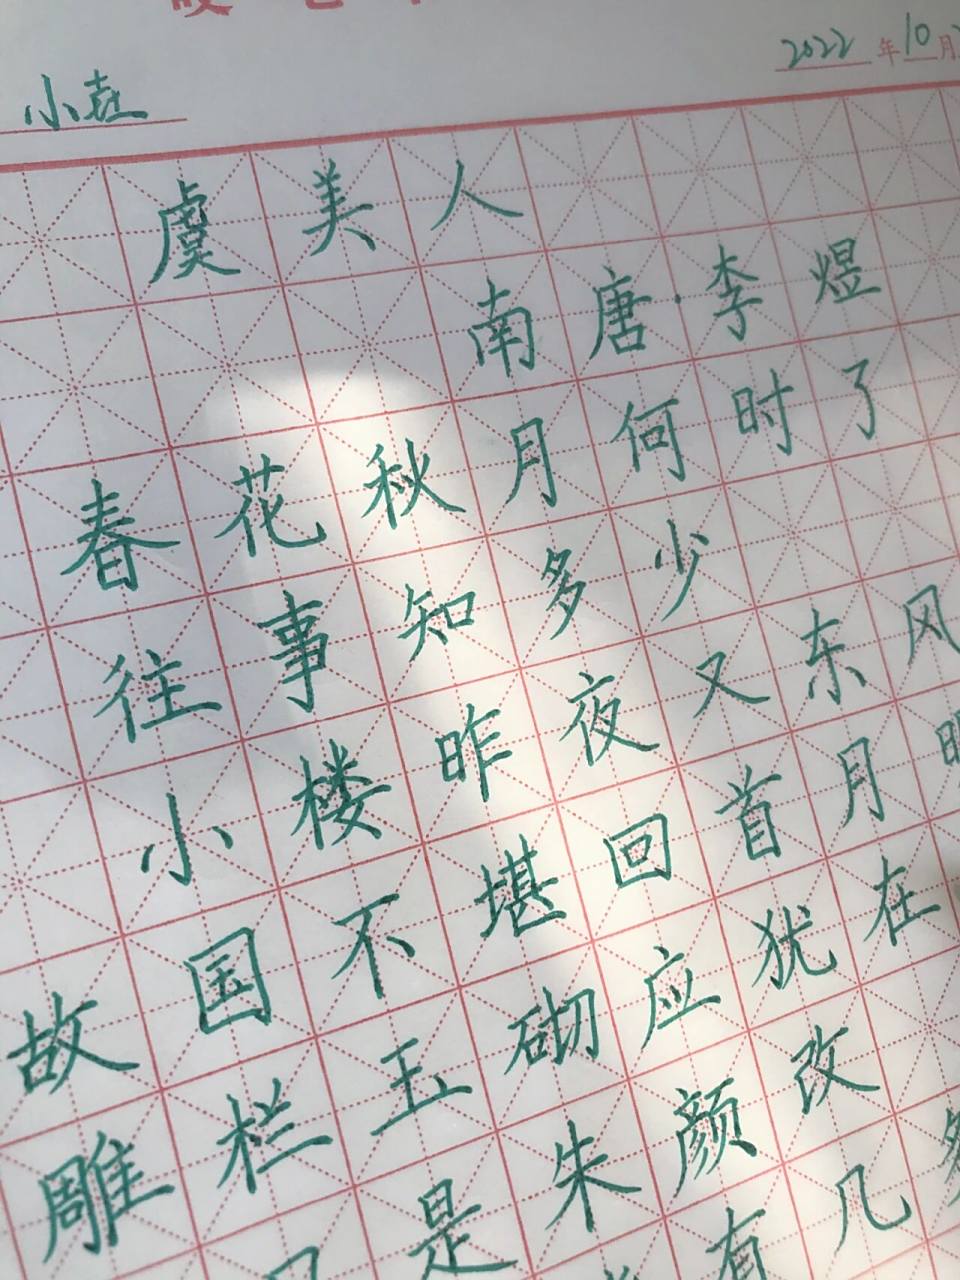 2022年10月
小
虞美人
南唐·李煜
春花秋月何时了
往事知多少
小楼昨夜又东风
故国不堪回首月明
雕栏玉砌应犹在
是朱颜改
有几